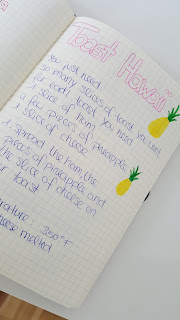 Toast Hawaii
You just need
so many slices of toast you want
for each toast you need
1 slice of ham
a few pieces of pineapple
1 slice of cheese
spread the ham, the
pieces of pineapple and
the slice of cheese on
toast
350°F
cheese melted